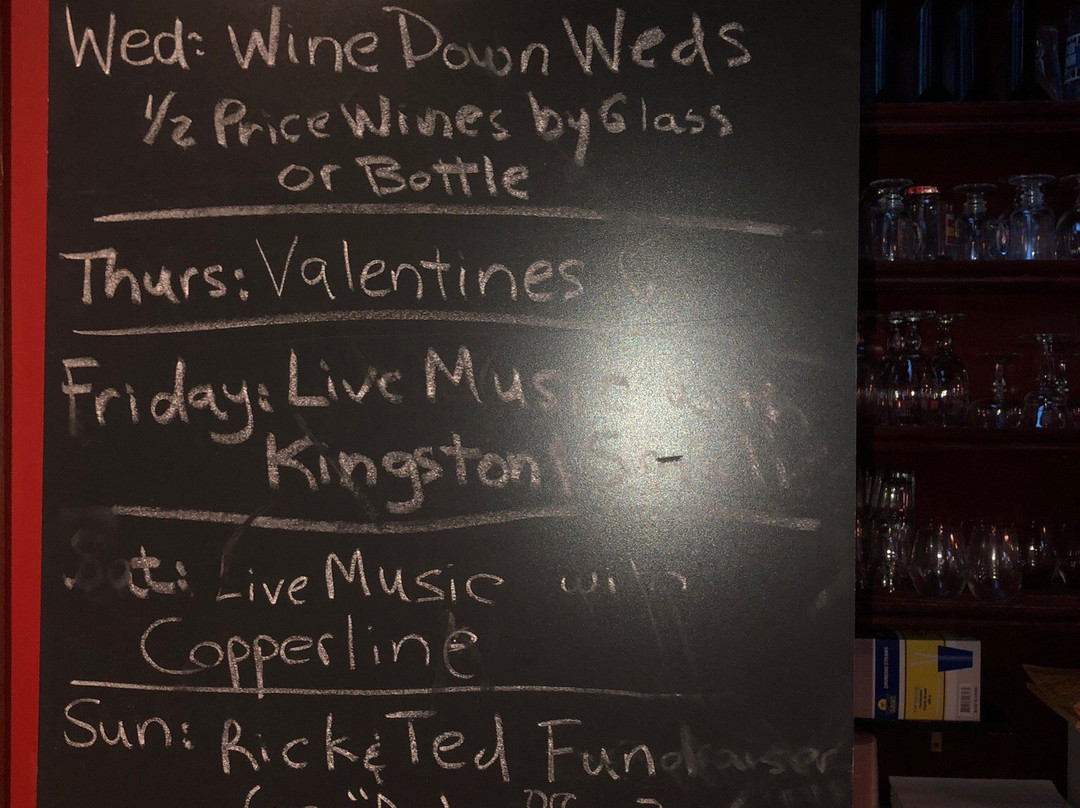 Wed: Wine Down Weds
1/2 Price Wines by Glass
or Bottle
Thurs: Valentines
Friday: Live Music
Kingston
Sat: Live Music with
Copperline
Sun: Rick & Ted Fundraiser